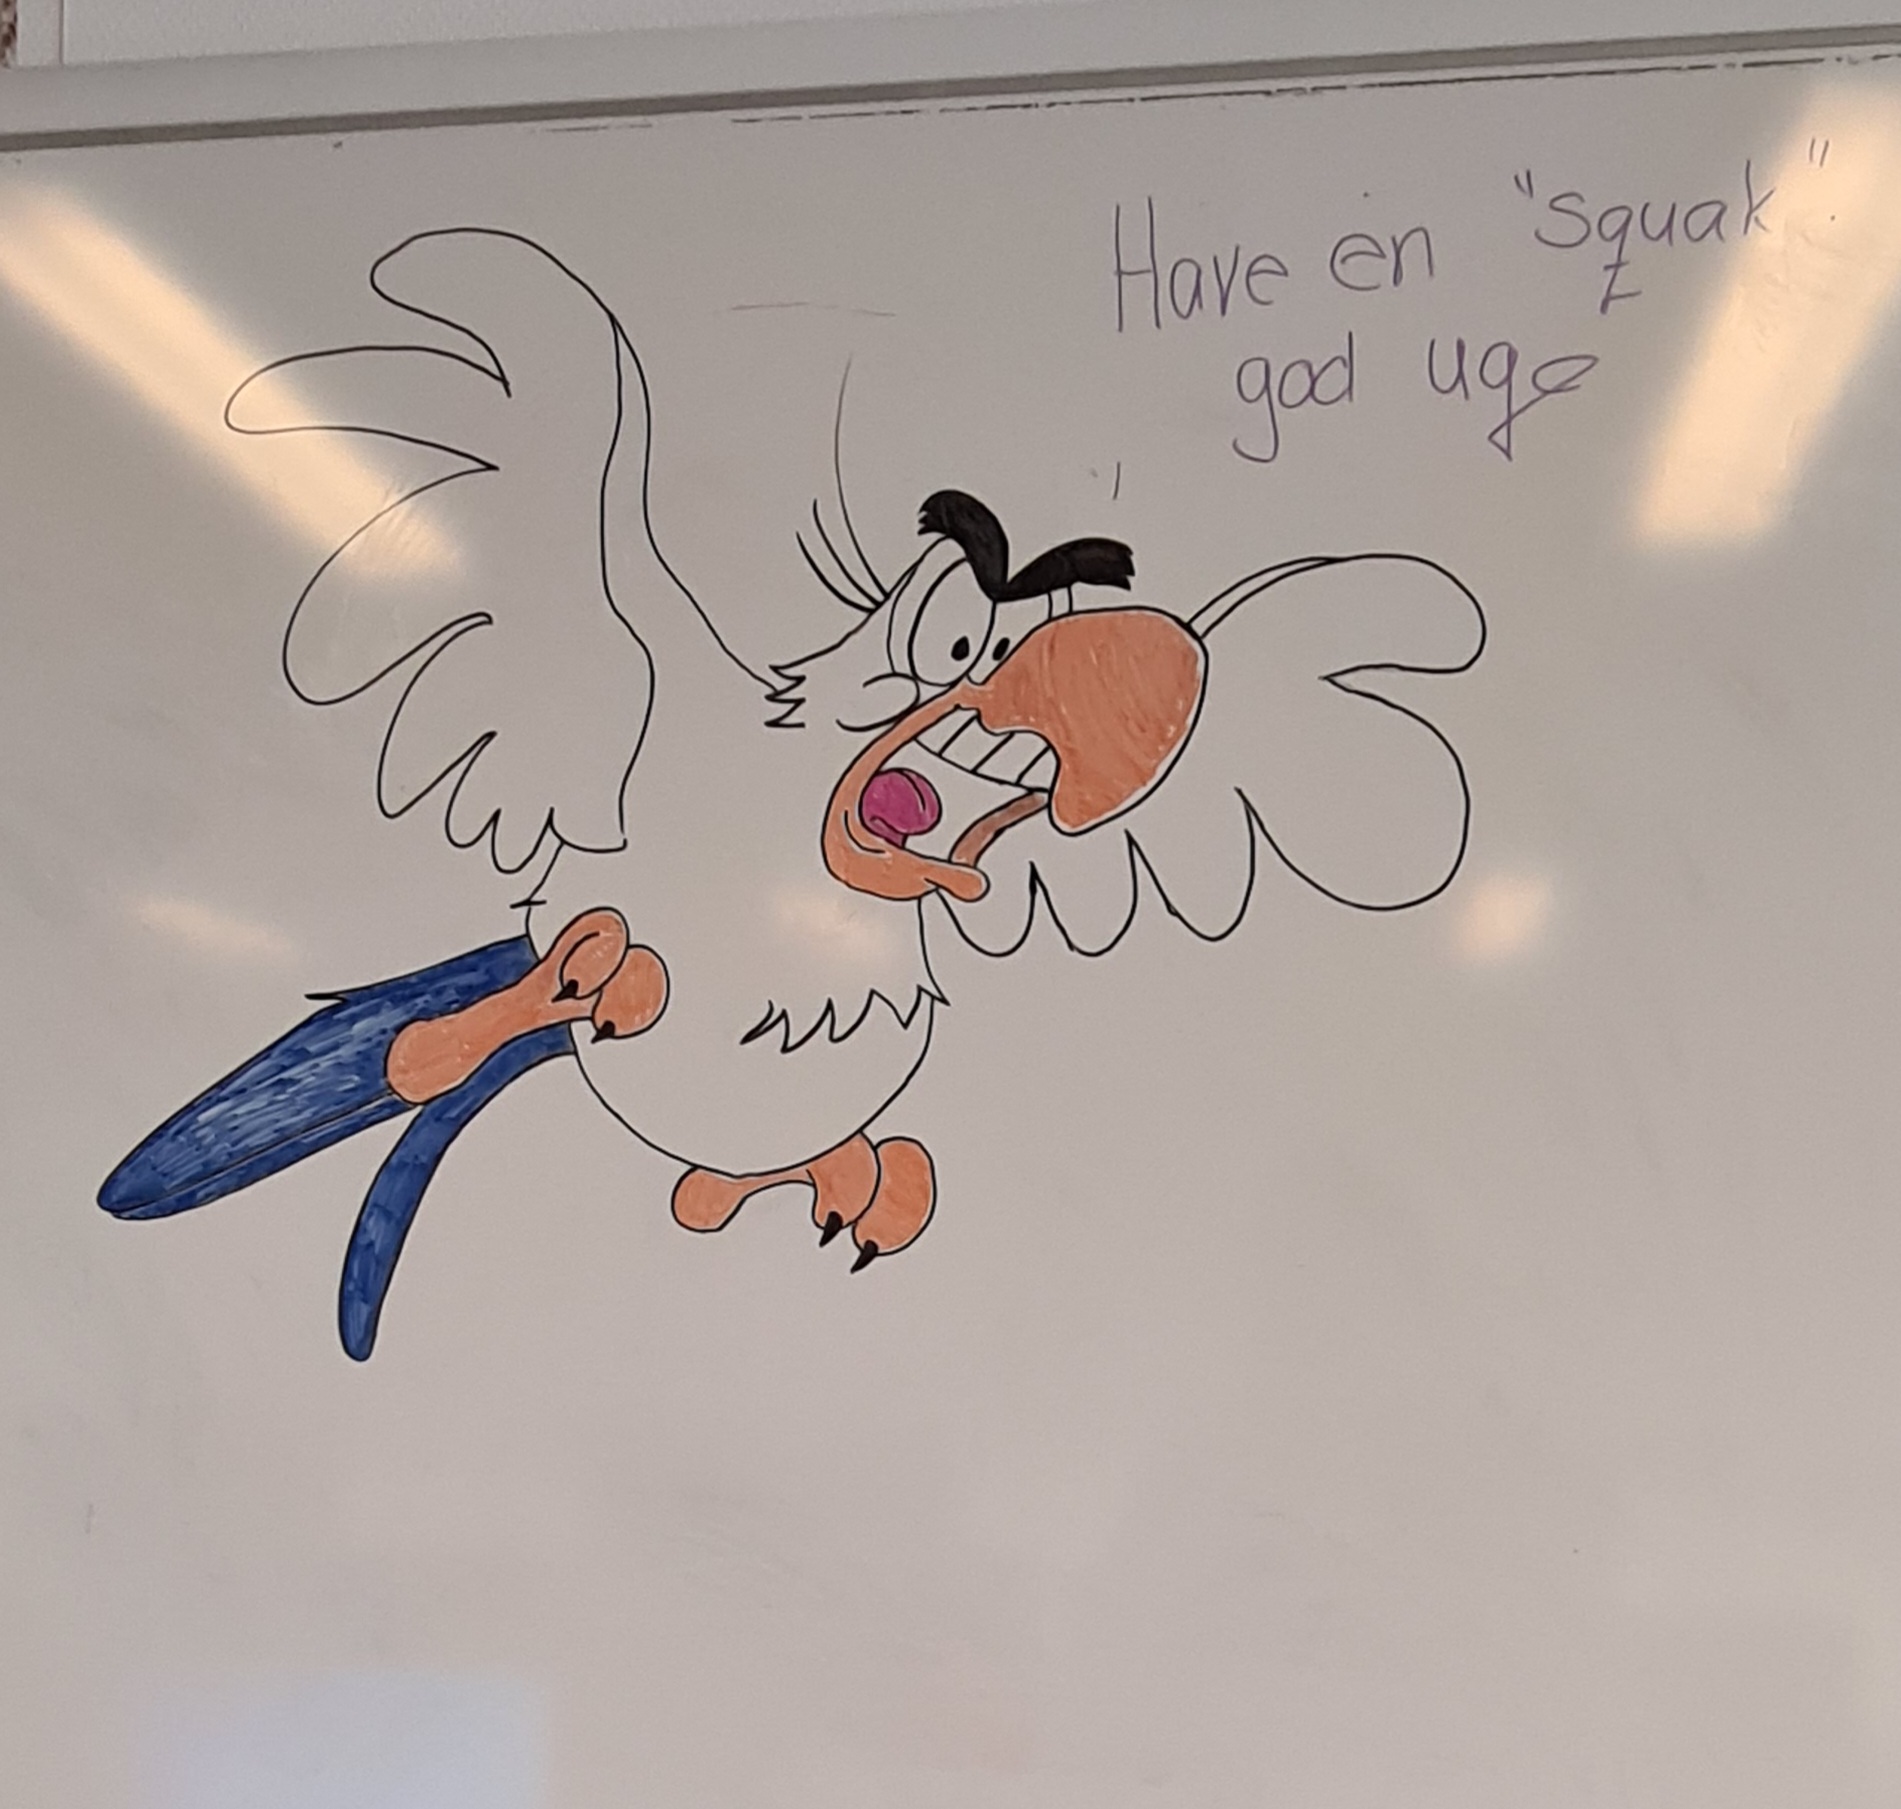 Have en "squak"
god uge